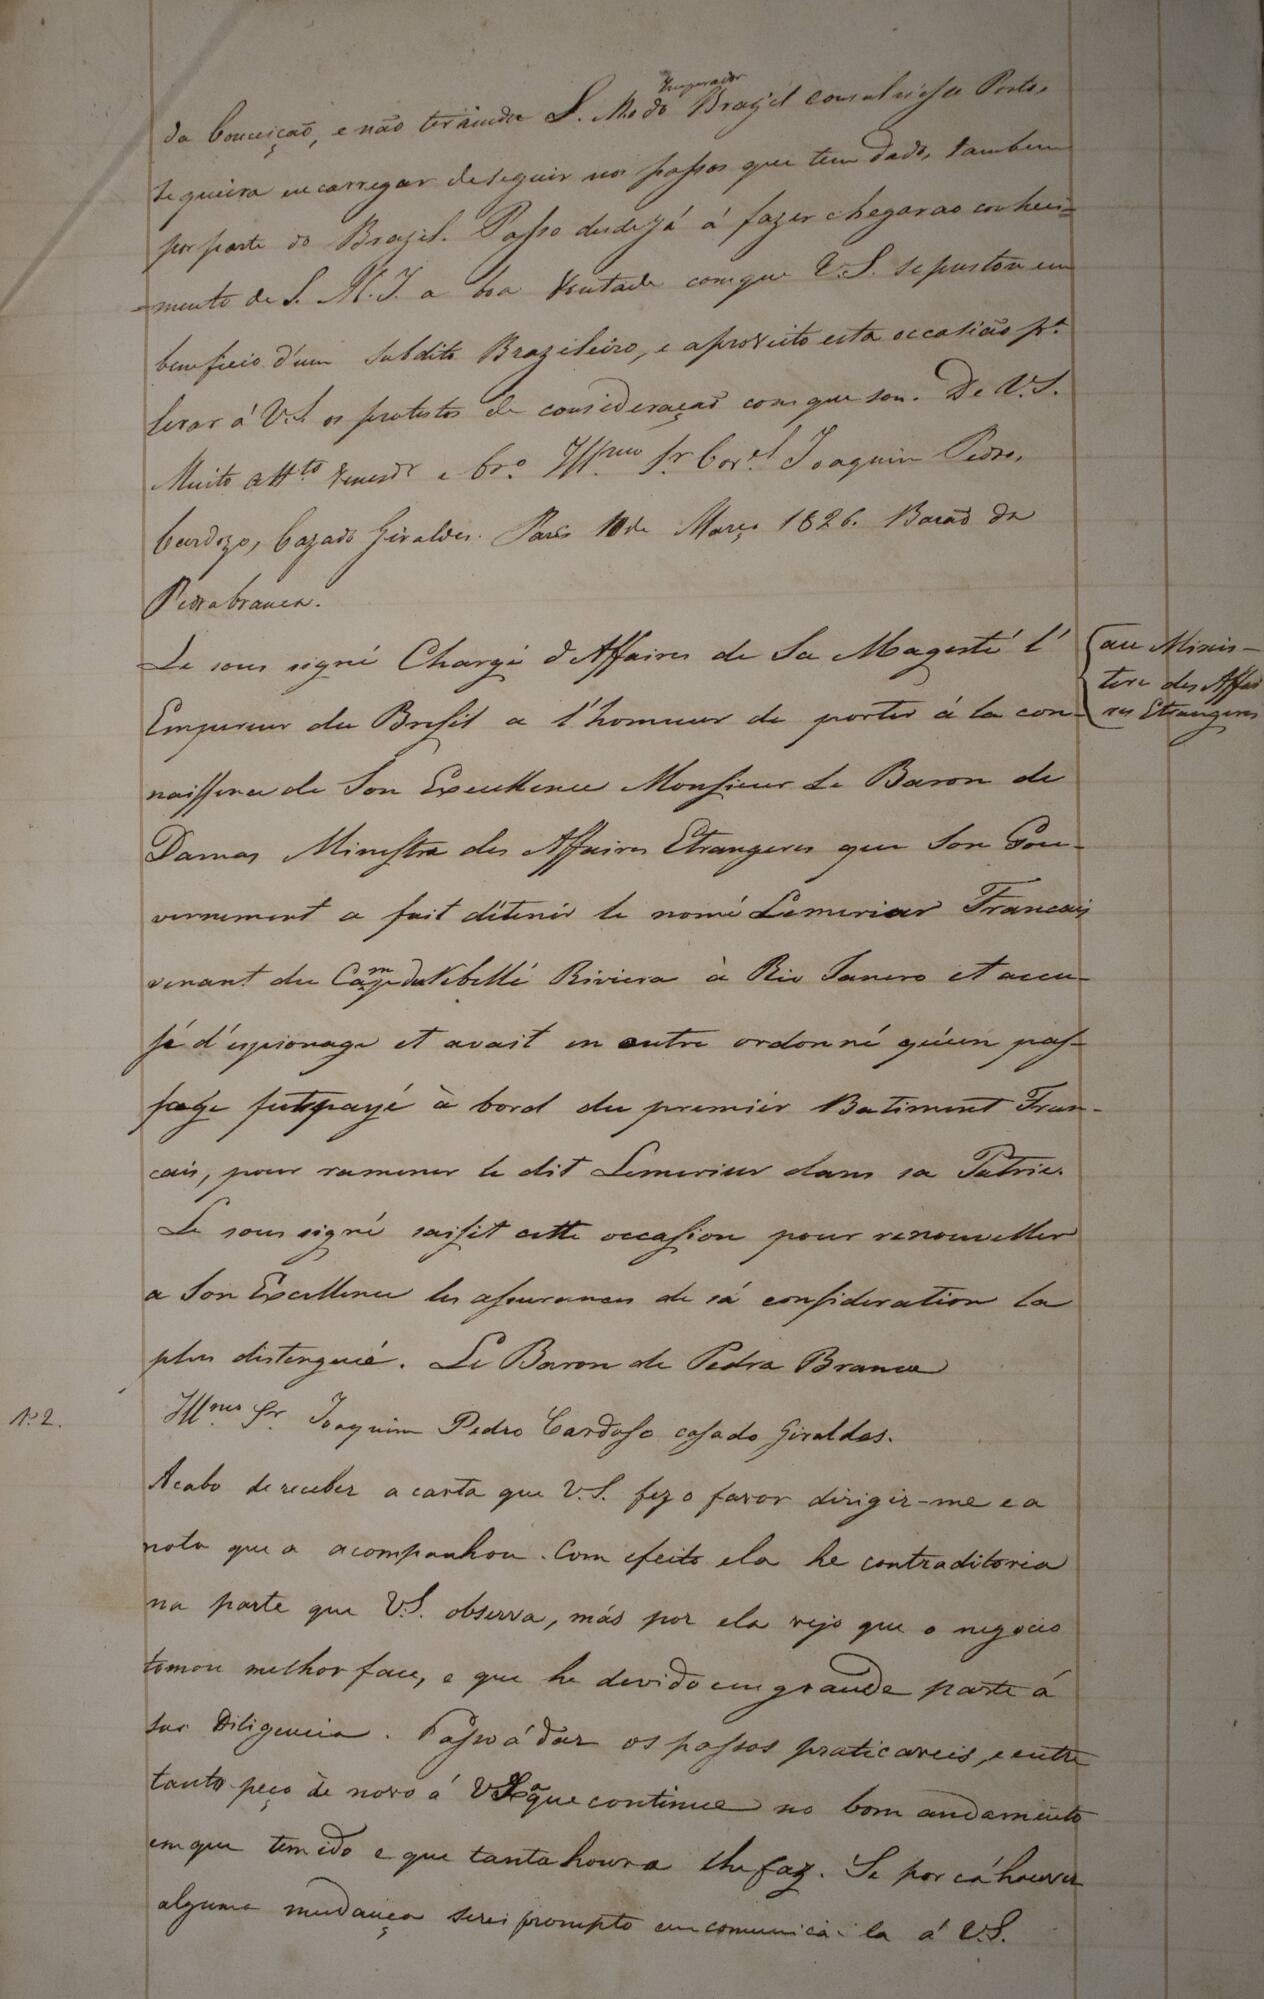 da Conceição, e não terainda S. M. o do Imperador Brazil consul nessa Porto,
se queira encarregar deseguir nos passos que tem dado, tambem
por parte do Brazil. Passo desdejá á fazer chegarao conheci=
=mento de S. M. I. a boa vontade comque V.S. seprestou em
beneficio d'um Subdito Brazileiro, e aproveito esta occasião pª
levar á V.S. os protestos de consideraçaõ comque sou. De V.S.
Muito attto Venerdr e Cro. Illmo Sr. Corel Joaquim Pedro,
Cardozo, Cazado Giraldes. Paris 10 de Março 1826. Baraõ da
Pedrabranca.
Le sous signé Chargé d'Affaires de Sa Magesté l'
Empereur du Bresil a l'honneur de porter á la con-
naissence de Son Excellence Monsieur Le Baron de
Damas Ministre des Affaires Etrangeres que Son Gou-
vernement a fait détenir le nomé Lemerier Francais
venant du Camp du Rebelle Riviera à Rio Janero et accu-
sé d'espionage et avait en outre ordonné qu'un pas-
sage fut payé à bord du premier Batiment Fran-
cais, pour ramener le dit Lemerier dans sa Patrie.
Le sous signé saisit cette occasion pour renouveller
a Son Excellence les assurances de sá consideration la
plus distenguié. Le Baron de Pedra Branca
au Minis-
tere des Affai
res Etrangeres
Nº 2.
Illmo Sr. Joaquim Pedro Cardoso casado Giraldes.
Acabo de receber a carta que V.S. fez o favor dirigir-me e a
nota que a acompanhou. Com efeito ela he contraditoria
na parte que V.S. observa, más por ela vejo que o negocio
tomou melhor face, e que he devido em grande parte á
sua Diligencia. Passo á dar os passos praticaveis, e entre
tanto peço de novo á V.S.a que continue no bom andamento
em que tem ido e que tanta honra lhe faz. Se por cá houver
alguma mudança serei prompto em comunicá-la á V.S.